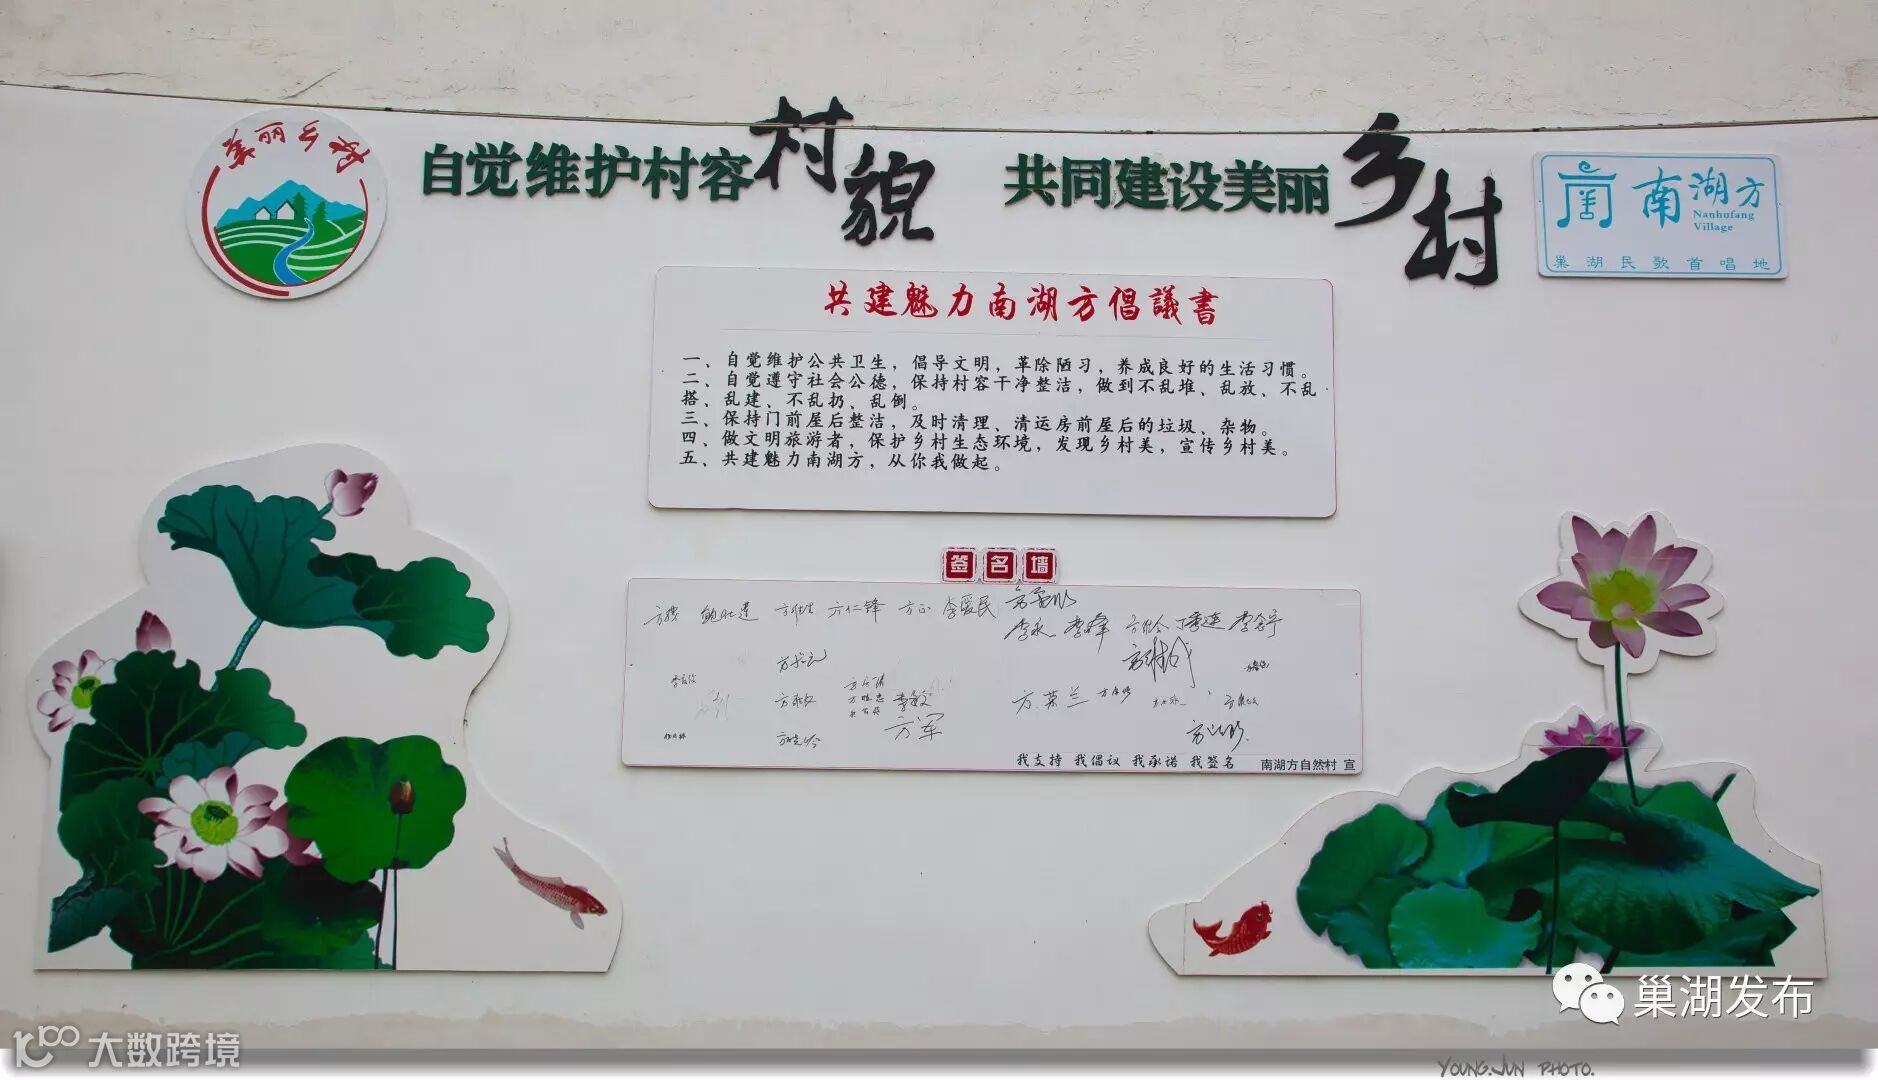 美丽乡村
自觉维护村容村貌 共同建设美丽乡村
南湖方
Nanhufang
Village
巢湖民歌首唱地
共建魅力南湖方倡議書
一、自觉维护公共卫生，倡导文明，革除陋习，养成良好的生活习惯。
二、自觉遵守社会公德，保持村容干净整洁，做到不乱堆、乱放、不乱
搭、乱建、不乱扔、乱倒。
三、保持门前屋后整洁，及时清理、清运房前屋后的垃圾、杂物。
四、做文明旅游者，保护乡村生态环境，发现乡村美，宣传乡村美。
五、共建魅力南湖方，从你我做起。
签名墙
方仁锋 方正 李爱民
李永 李峰
方荣兰
李敏
方军
我支持 我倡议 我承诺 我签名 南湖方自然村 宣
巢湖发布
大数跨境
YOUNG.JUN PHOTO.